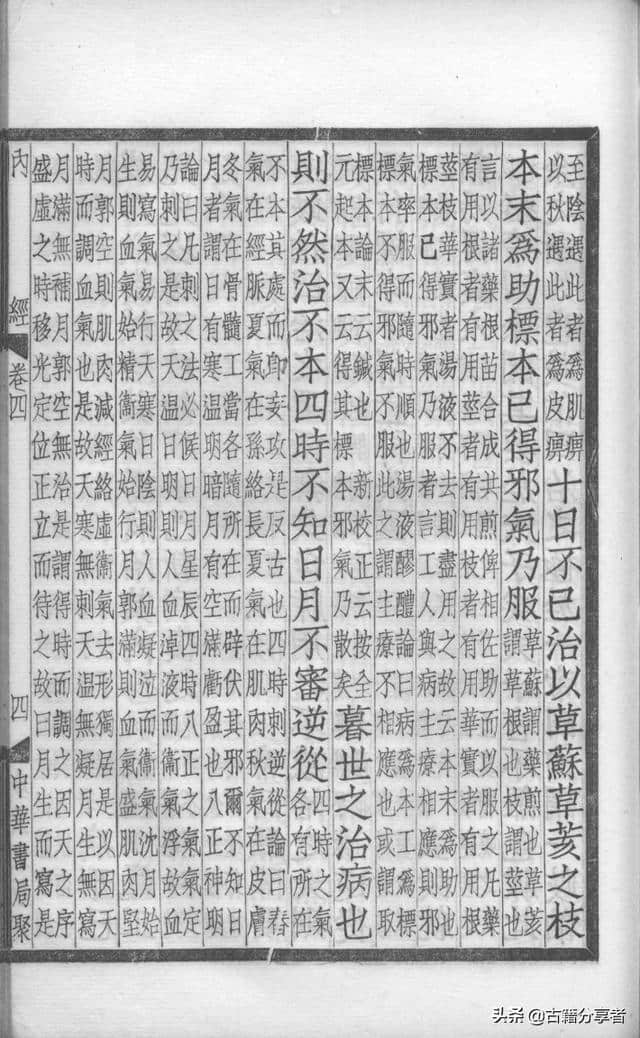 至陰遇此者爲肌痹
以秋遇此者爲皮痹
十日不已治以草蘇草荄之枝
本末爲助標本已得邪氣乃服
草蘇謂藥煎也草荄
謂草根也枝謂莖也
言以諸藥根苗合成共煎俾相佐助而以服之凡藥
有用根者有用莖者有用枝者有用華實者有用根
莖枝華實者湯液不去則盡用之故云本末爲助也
標本已得邪氣乃服者言工人與病主療相應則邪
氣率服而隨時順也湯液醪醴論曰病爲本工爲標
標本不得邪氣不服此之謂主療不相應也或謂取
標本論末云鍼也新校正云按全
元起本又云得其標本邪氣乃散矣
暮世之治病也
則不然治不本四時不知日月不審逆從
四時之氣
各有所在
不本其處而卽妄攻是反古也四時刺逆從論曰春
氣在經脈夏氣在孫絡長夏氣在肌肉秋氣在皮膚
冬氣在骨髓工當各隨所在而辟伏其邪爾不知日
月者謂日有寒溫明暗月有空滿虧盈也八正神明
論曰凡刺之法必候日月星辰四時八正之氣氣定
乃刺之是故天溫日明則人血淖液而衞氣浮故血
易寫氣易行天寒日陰則人血凝泣而衞氣沈月始
生則血氣始精衞氣始行月郭滿則血氣盛肌肉堅
月郭空則肌肉減經絡虛衞氣去形獨居是以因天
時而調血氣也是故天寒無刺天溫無凝月生無寫
月滿無補月郭空無治是謂得時而調之因天之序
盛虛之時移光定位正立而待之故曰月生而寫是
內經 卷四 四 中華書局聚
头条 @古籍分享者